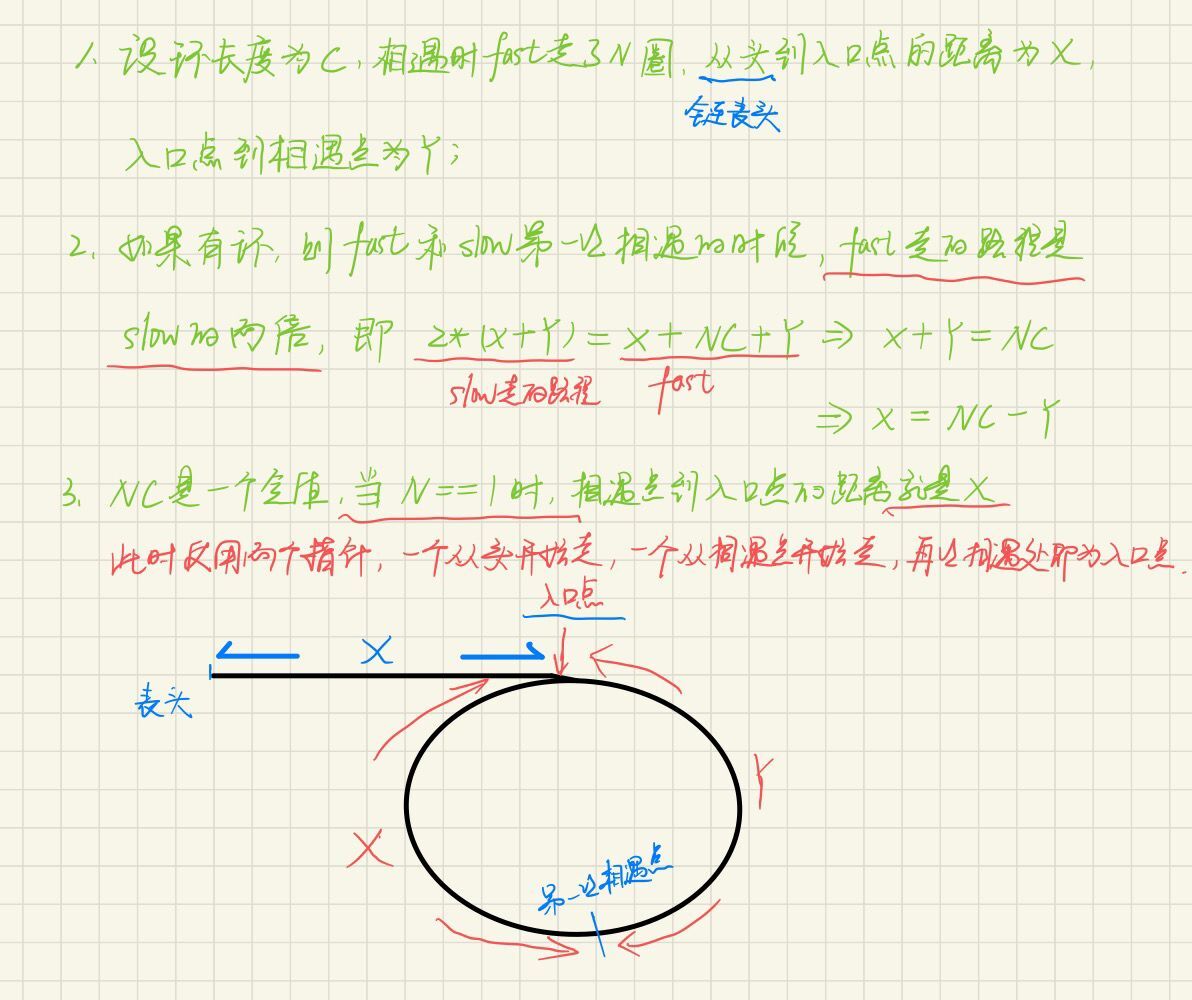 1、设环长度为C,相遇时fast走了N圈,从头到入口点的距离为X,
全链表头
入口点到相遇点为Y;
2、如果有环,则fast和slow第一次相遇的时候,fast走的路程是
slow的两倍,即 2*(X+Y)=X+NC+Y ⇒ X+Y=NC
slow走的路程 fast
⇒ X = NC-Y
3、NC是一个定值,当N==1时,相遇点到入口点的距离就是X
此时使用两个指针,一个从头开始走,一个从相遇点开始走,再次相遇处即为入口点.
入口点
X
表头
Y
X
第一次相遇点